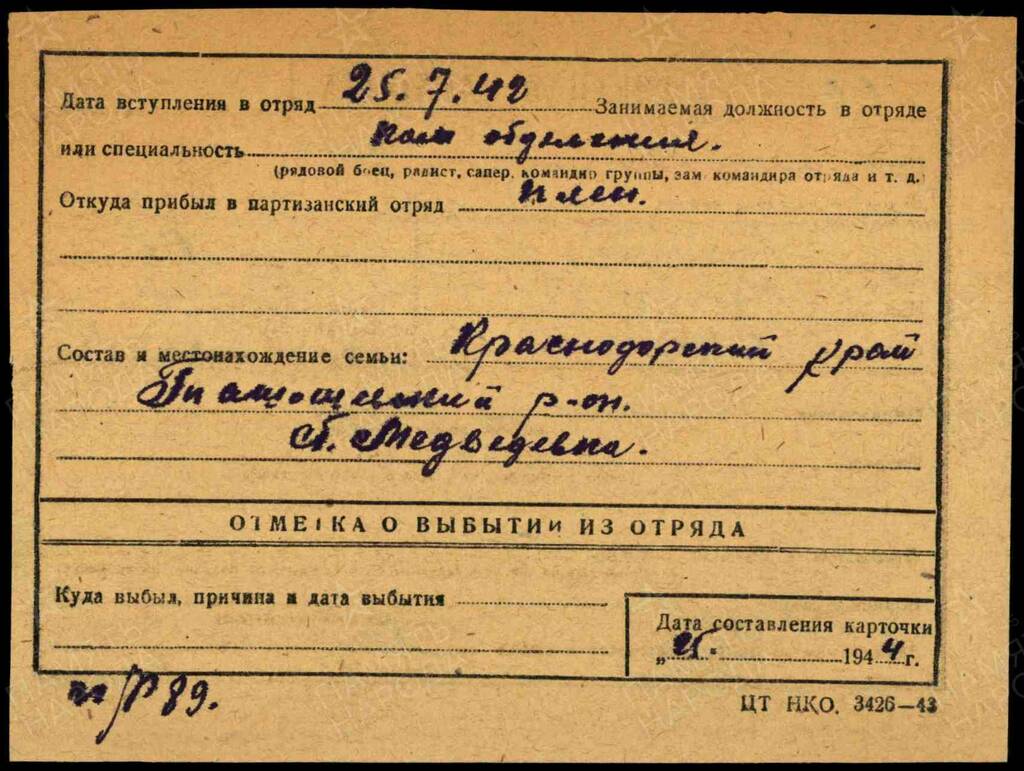 Дата вступления в отряд 25.7.42 Занимаемая должность в отряде
или специальность ком отделения.
(рядовой боец, радист, сапер, командир группы, зам. командира отряда и т. д.)
Откуда прибыл в партизанский отряд плен.
Состав и местонахождение семьи: Краснодорский край
р-он.
ст. Медведевка.
ОТМЕТКА О ВЫБЫТИИ ИЗ ОТРЯДА
Куда выбыл, причина и дата выбытия
Дата составления карточки
„ 194 4 г.
89.
ЦТ НКО. 3426—43